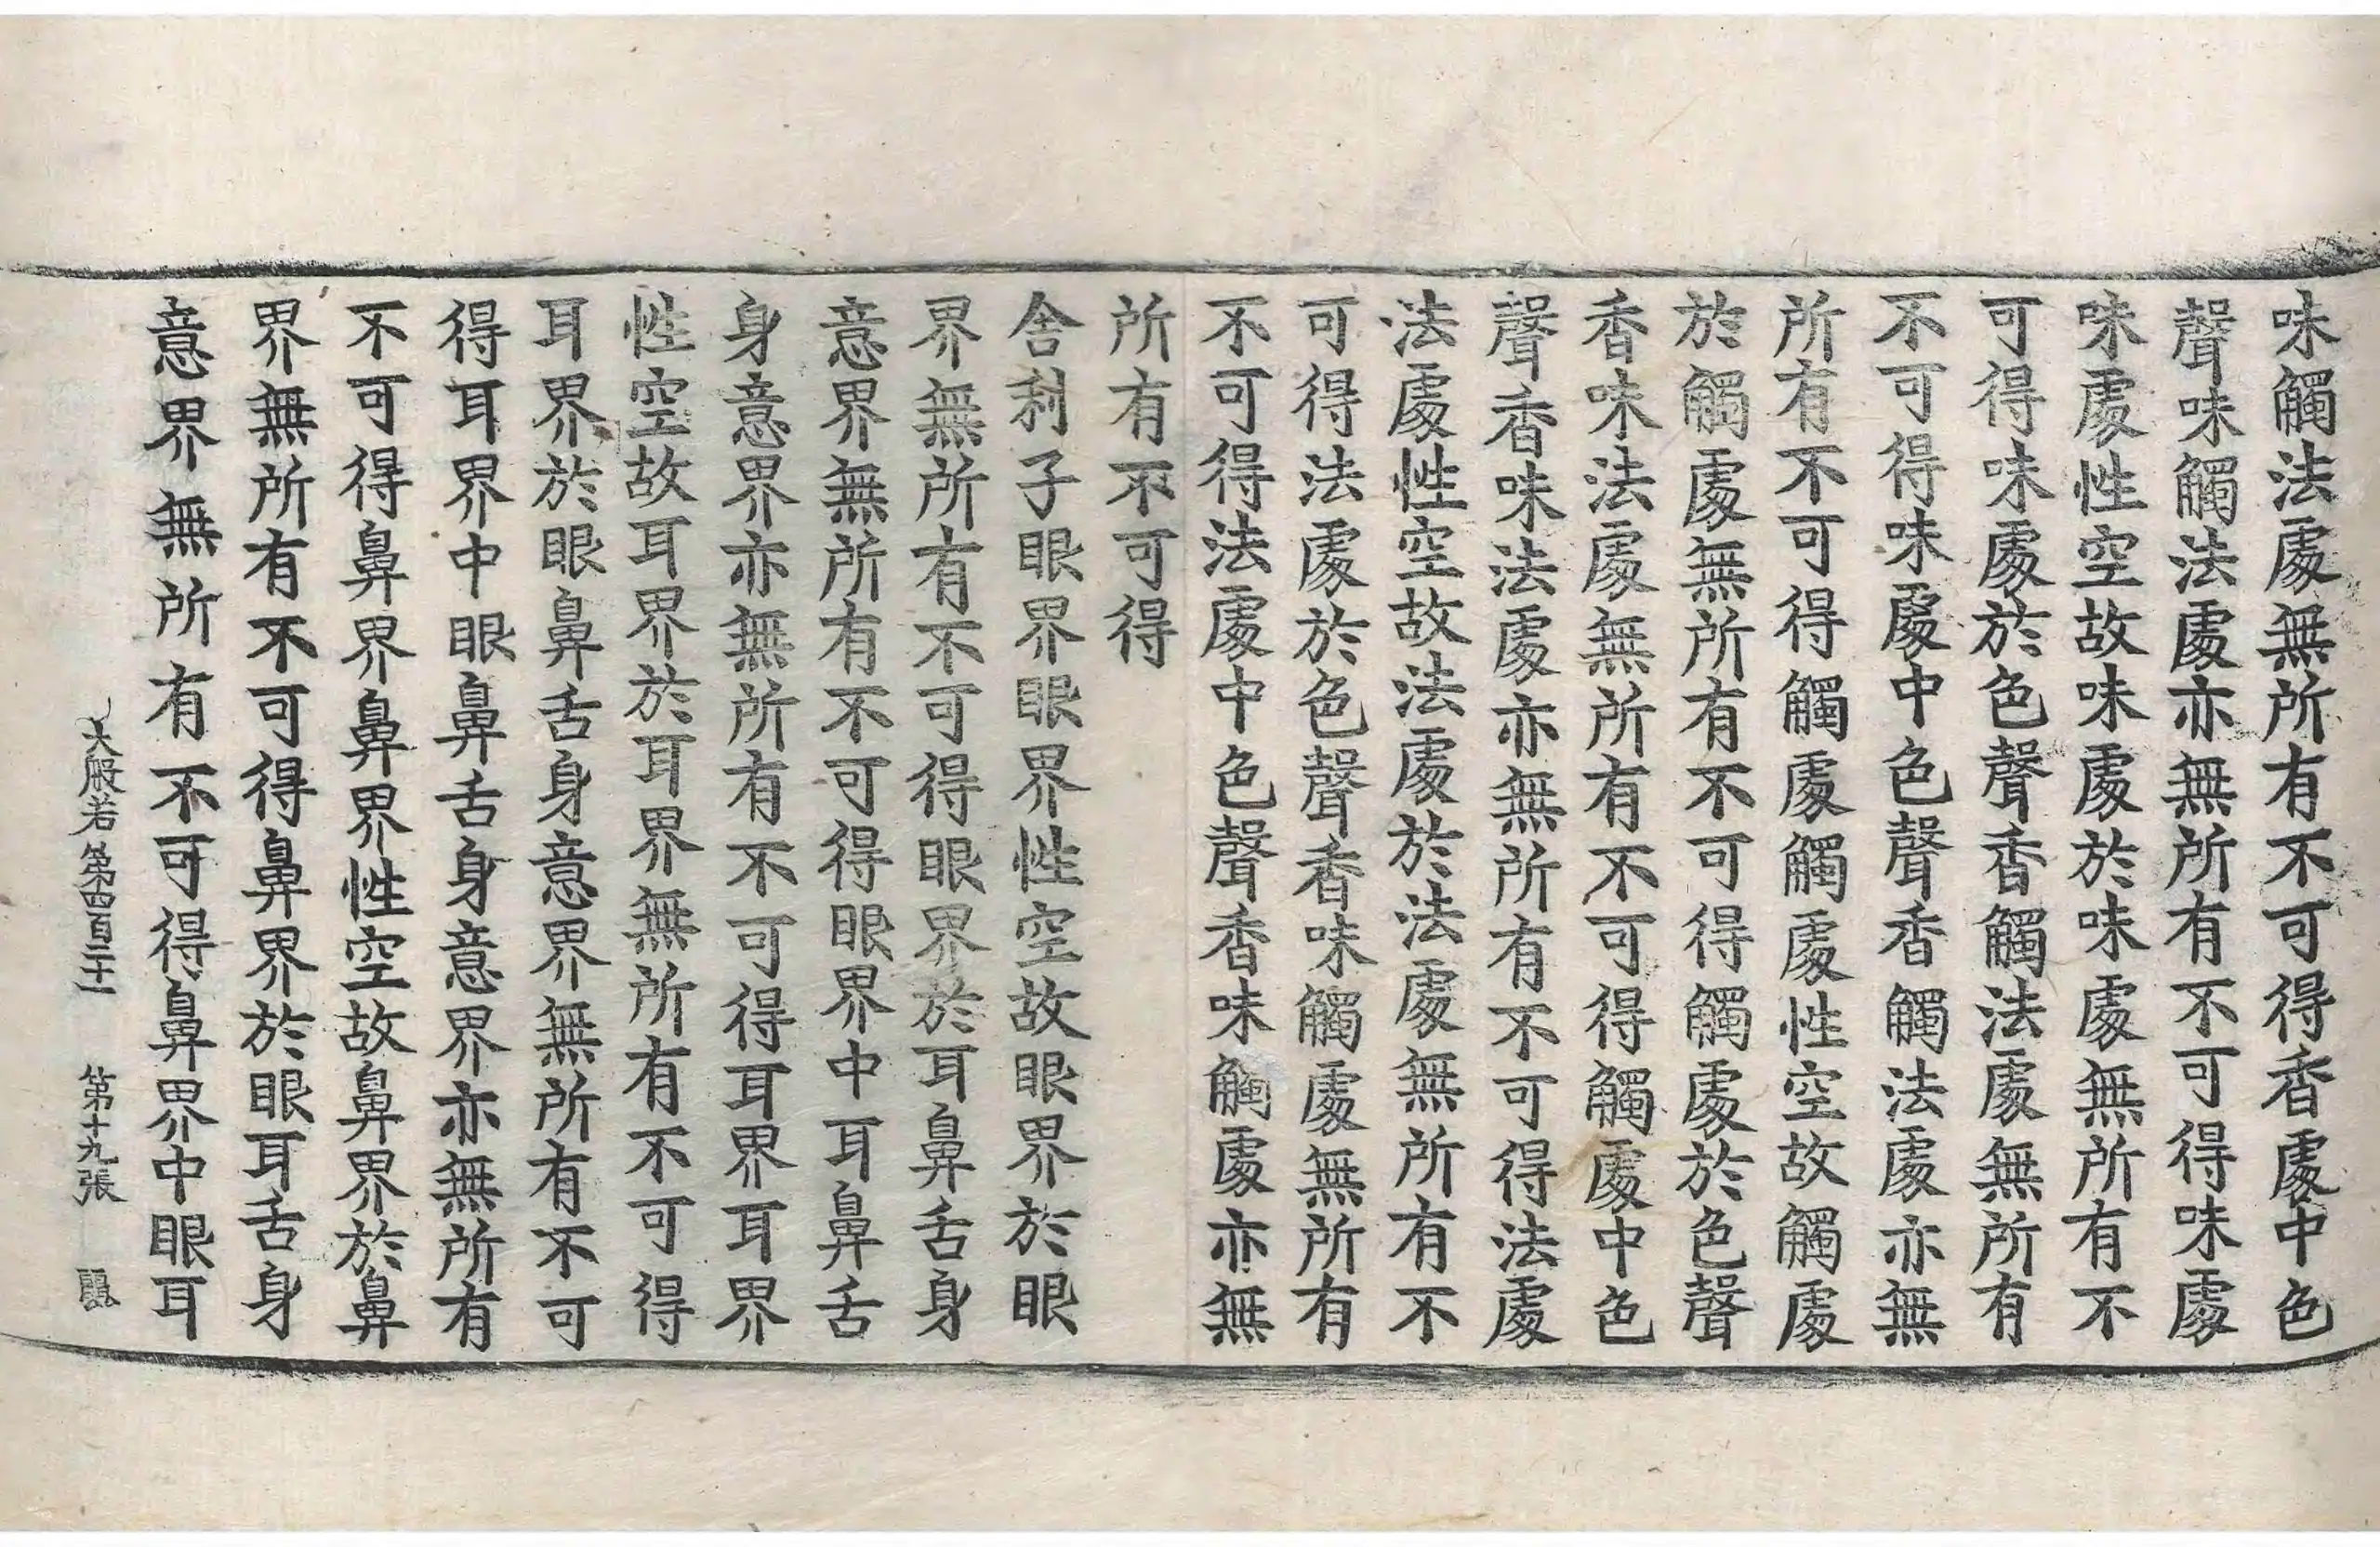 味觸法處無所有不可得香處中色
聲味觸法處亦無所有不可得味處
味處性空故味處於味處無所有不
可得味處於色聲香觸法處無所有
不可得味處中色聲香觸法處亦無
所有不可得觸處觸處性空故觸處
於觸處無所有不可得觸處於色聲
香味法處無所有不可得觸處中色
聲香味法處亦無所有不可得法處
法處性空故法處於法處無所有不
可得法處於色聲香味觸處無所有
不可得法處中色聲香味觸處亦無
所有不可得
舍利子眼界眼界性空故眼界於眼
界無所有不可得眼界於耳鼻舌身
意界無所有不可得眼界中耳鼻舌
身意界亦無所有不可得耳界耳界
性空故耳界於耳界無所有不可得
耳界於眼鼻舌身意界無所有不可
得耳界中眼鼻舌身意界亦無所有
不可得鼻界鼻界性空故鼻界於鼻
界無所有不可得鼻界於眼耳舌身
意界無所有不可得鼻界中眼耳
大般若第四百二十一 第十九張